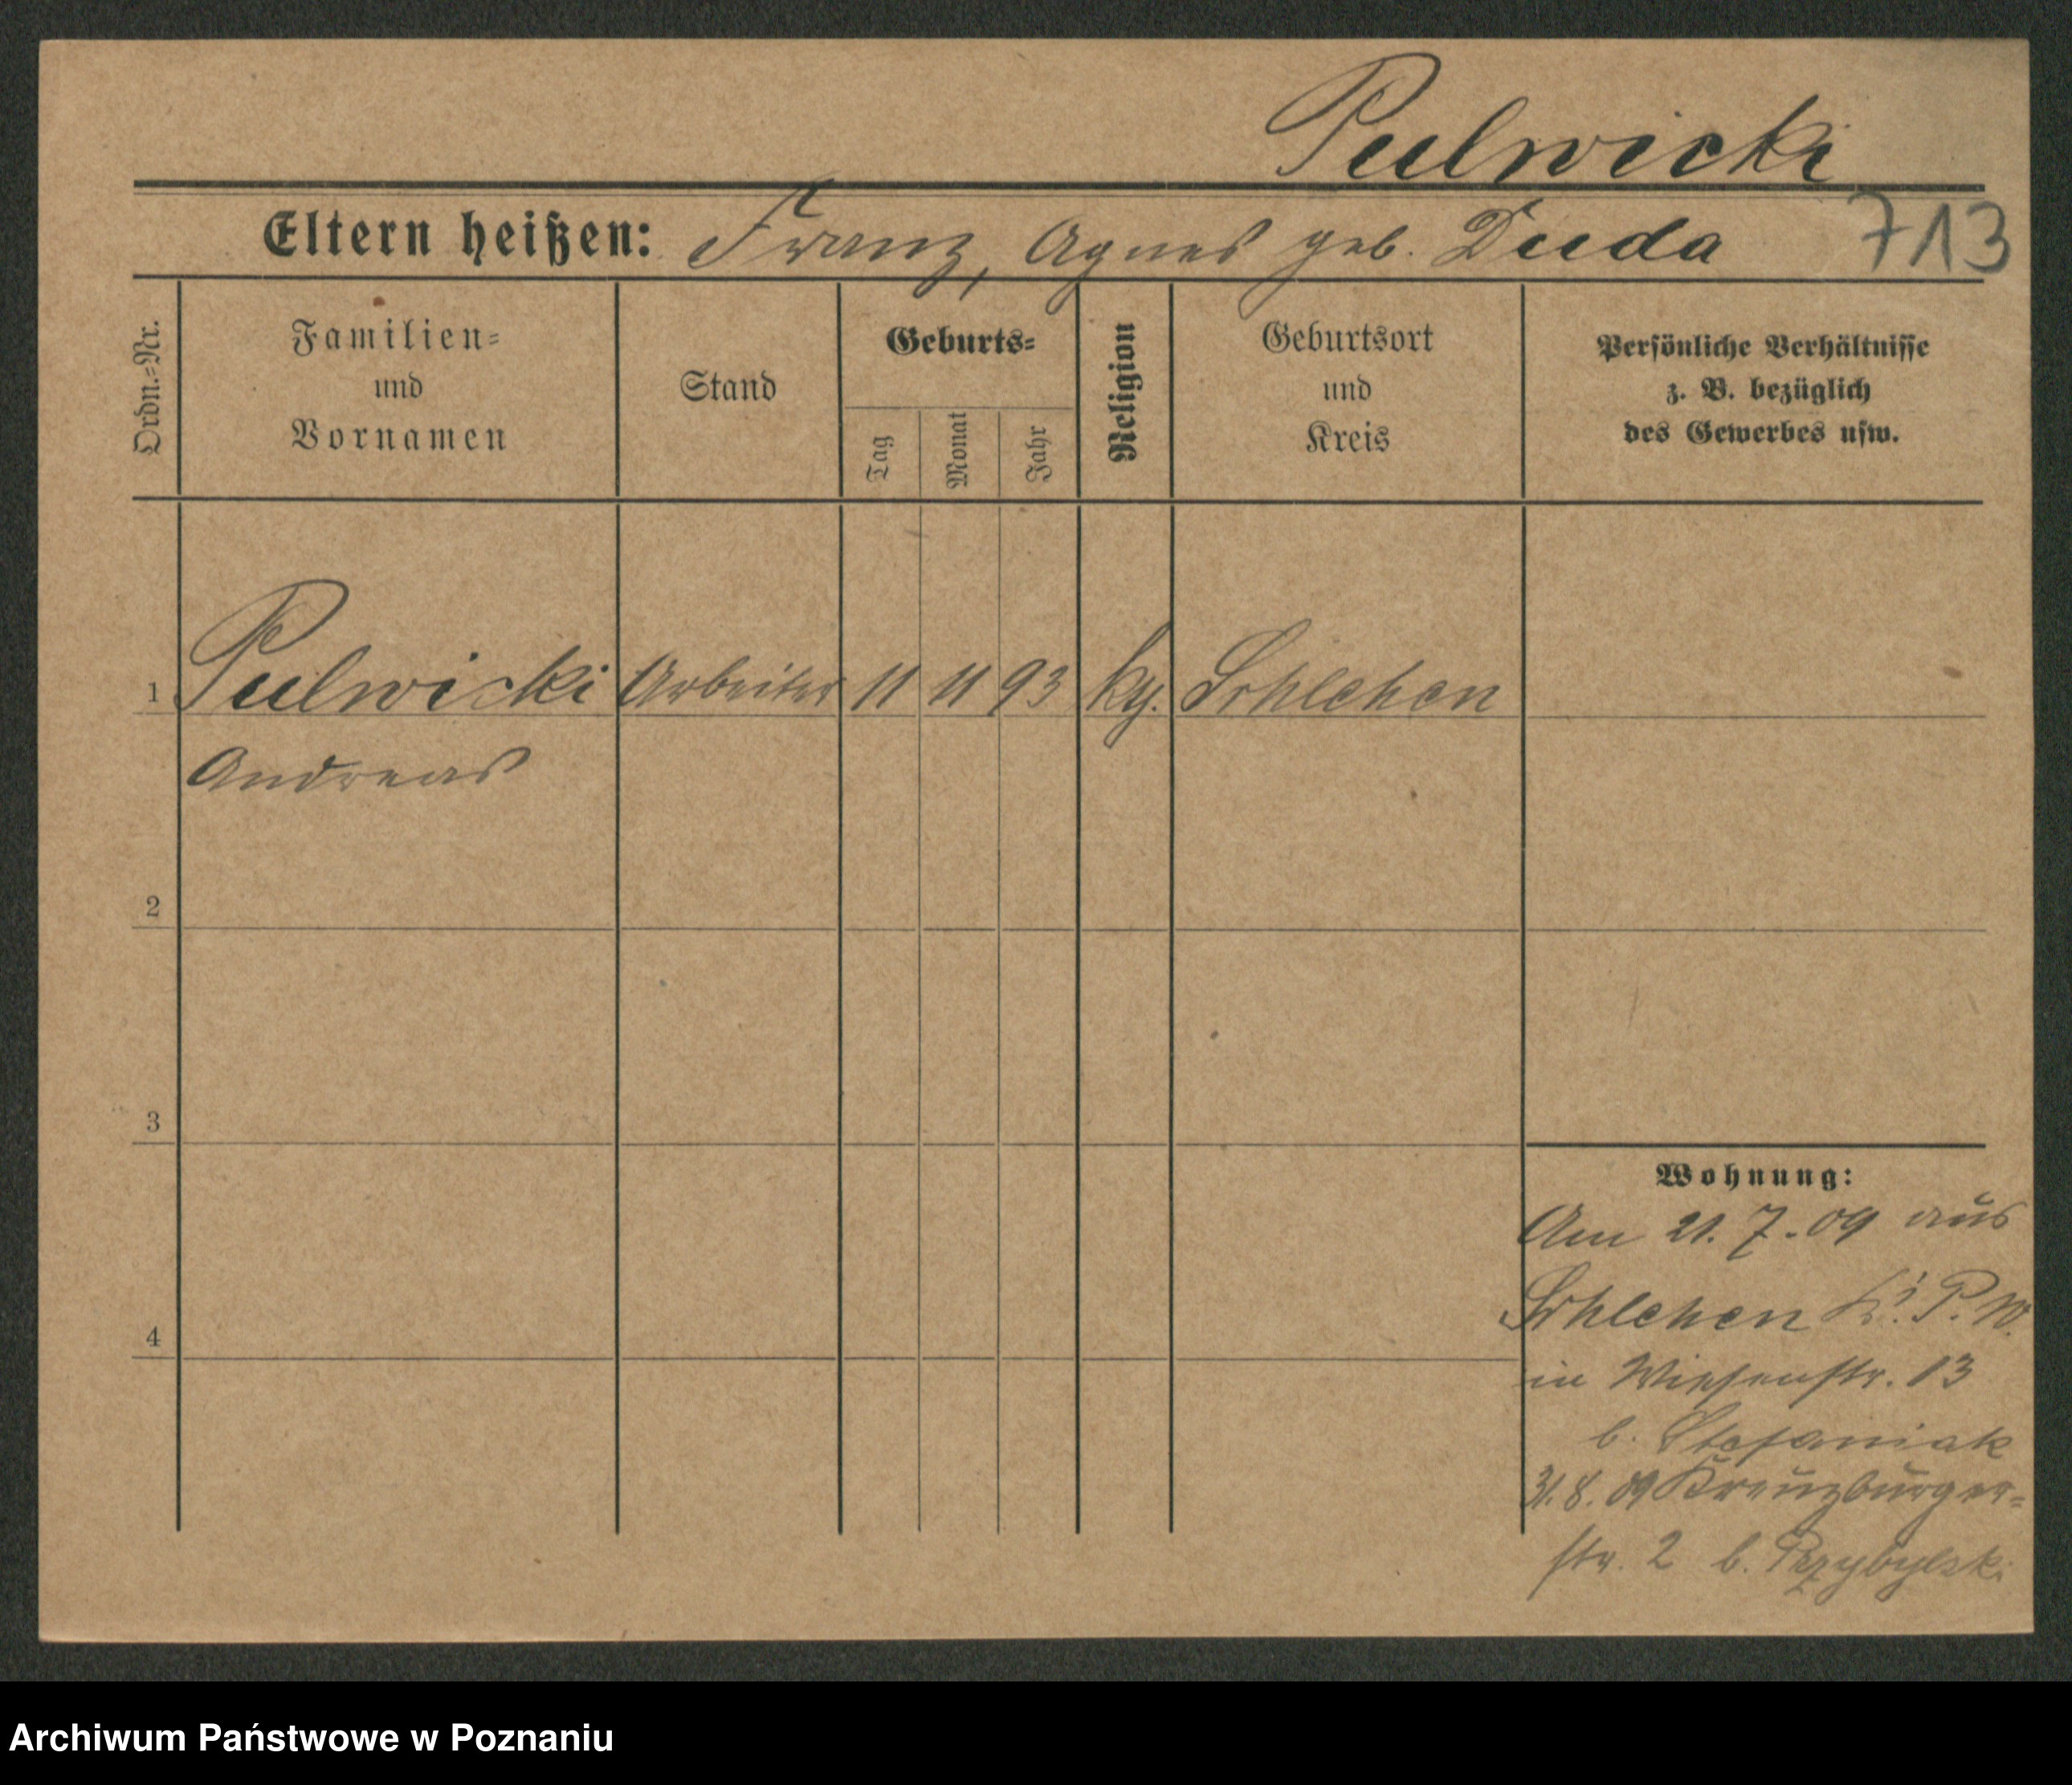 Pulwicki
Eltern heißen: Franz, Agnes geb. Duda 713
Ordn.-Nr.
Familien-
und
Vornamen
Stand
Geburts-
Tag
Monat
Jahr
Religion
Geburtsort
und
Kreis
Persönliche Verhältnisse
z. B. bezüglich
des Gewerbes usw.
1 Pulwicki Arbeiter 11 11 93 Schlehen
Andreas
2
3
4
Wohnung:
Am 21.7.09 aus
Schlehen Kr. P. W.
in Wiesenstr. 13
b. Stefaniak
31.8.09 Kreuzburger-
str. 2 b. Przybylski
Archiwum Państwowe w Poznaniu